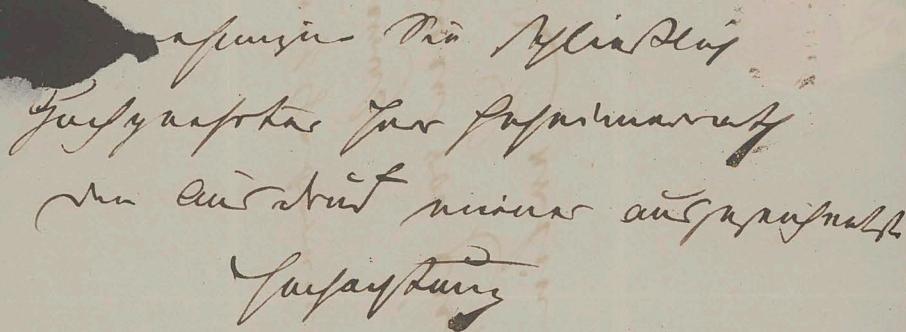 nehmigen Sie schließlich
Hochgeehrter Herr Geheimerrath
den Ausdruck meiner ausgezeichnetst
Hochachtung